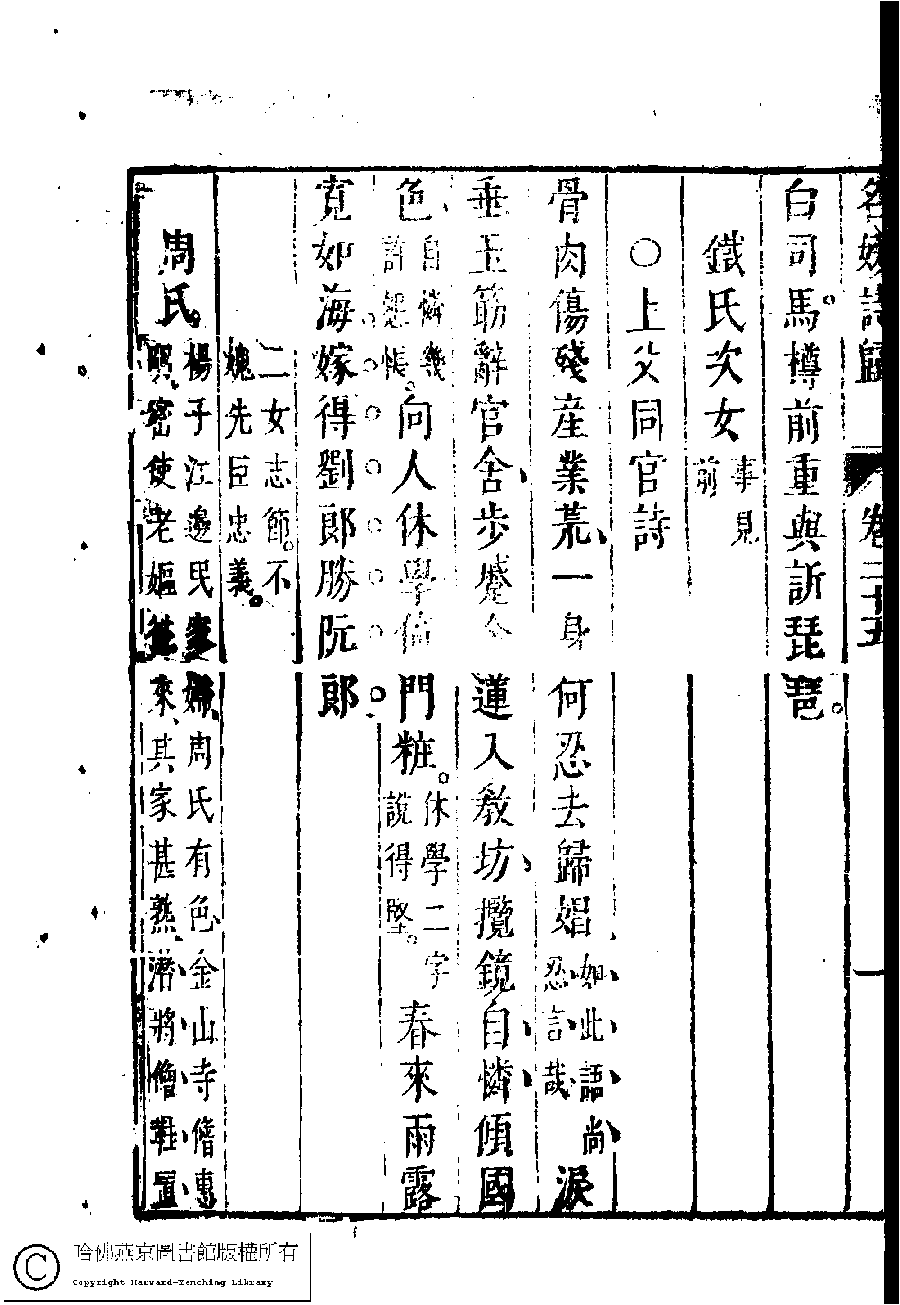 名媛詩歸　卷二十五　一
白司馬。樽前重與訴琵琶。
鐵氏次女 事見
前
○上父同官詩
骨肉傷殘産業荒、一身何忍去歸娼、 如此語尚
忍言哉 淚
垂玉筯辭官舍、步蹙金蓮入教坊、攬鏡自憐傾國
色、 自憐幾
許悵。 向人休學倚門粧。 休學二字
說得堅。 春來雨露
寬如海。嫁得劉郎勝阮郎。
二女志節。不
愧先臣忠義。
周氏。 楊子江邊民家婦、周氏有色、金山寺僧惠
明、密使老嫗往來、其家甚熟、潛將僧鞋置
哈佛燕京圖書館版權所有
Copyright Harvard-Yenching Library